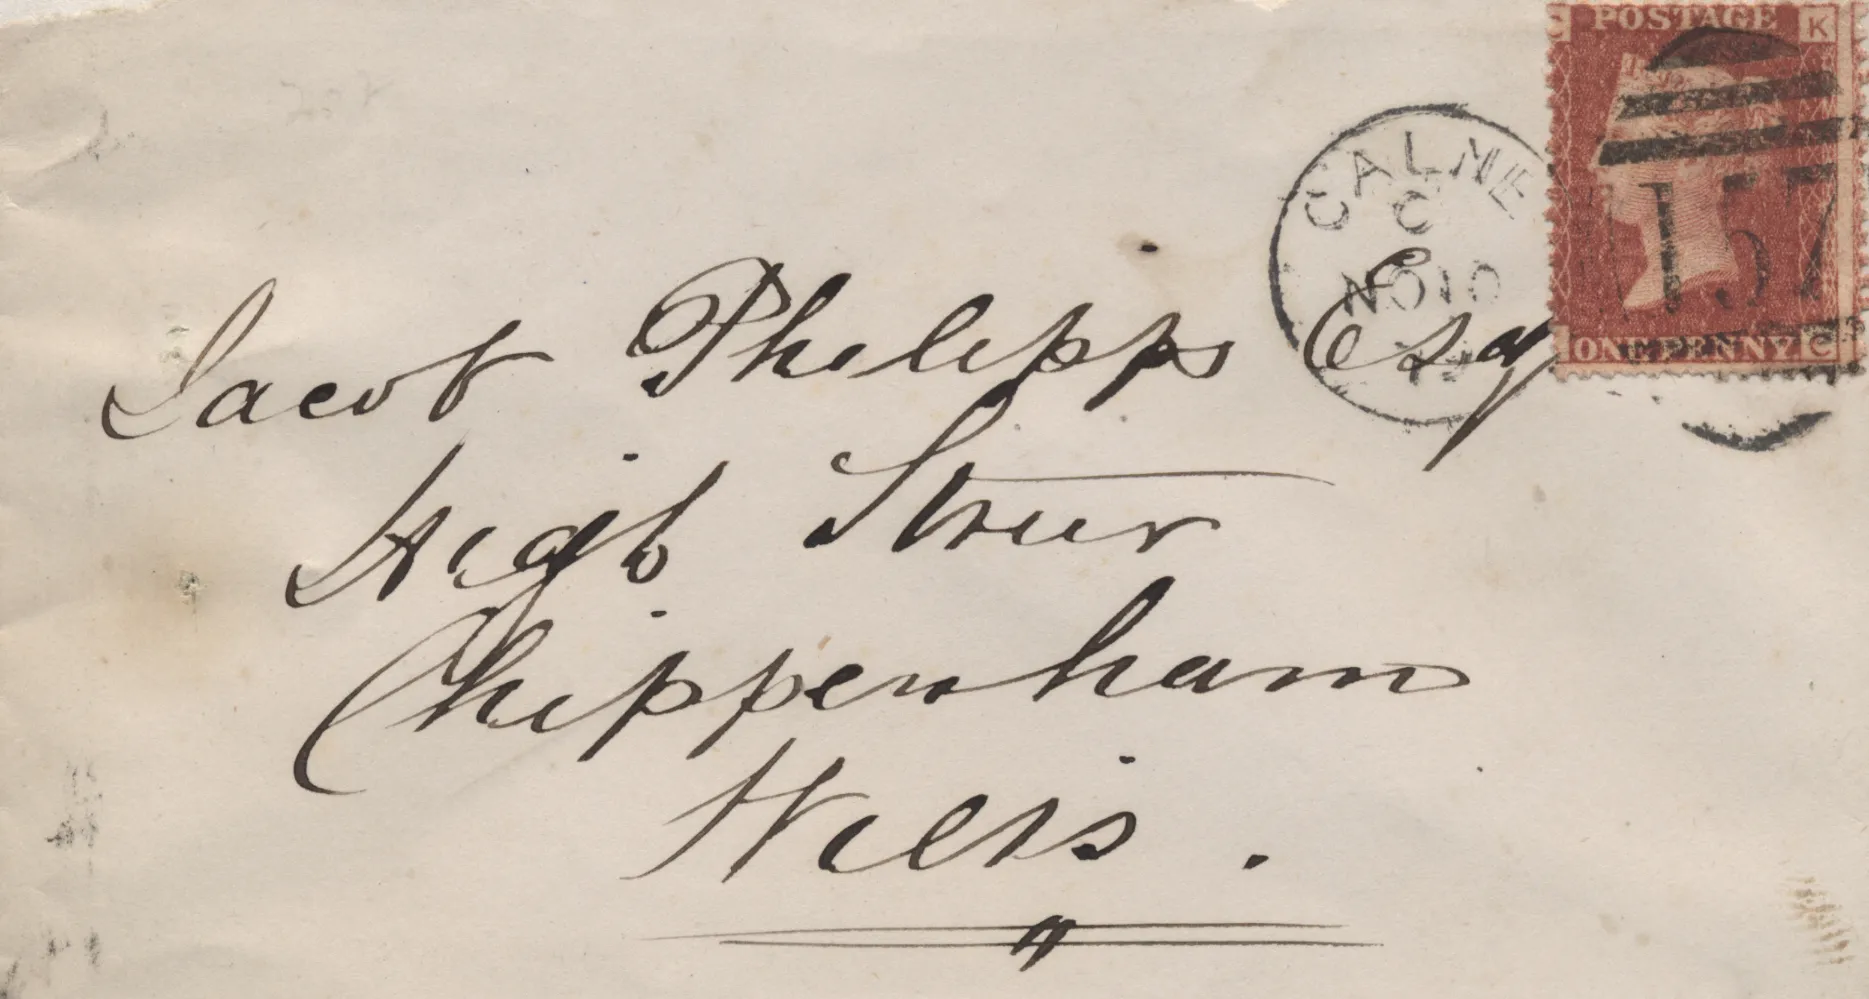 POSTAGE
K
CALNE
C
NO 10
157
ONE PENNY
C
Jacob Phelipps Esq
High Street
Chippenham
Wilts.